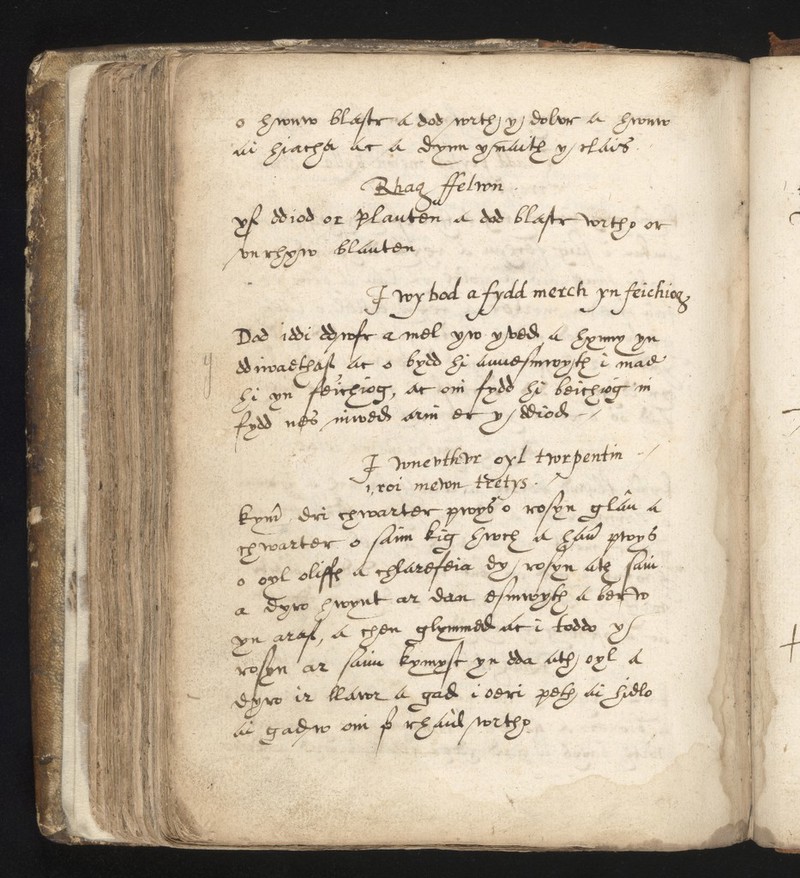 o hwnw blastr a dod wrth y dolur a hwnw
ai hiacha ac a dynn ymaith y clais
Rhag ffelwn
yf ddiod or plauten a dod blastr wrtho or
vnrhyw blauten
I wybod a fydd merch yn feichiog
Dod iddi ddwfr a mel yw yved a hynny yn
ddiwaethaf ac o bydd hi anuesmwyth i mae
hi yn feichiog, ac oni fydd hi beichiog ni
fydd nes niwed arni er y ddiod
I wneuthur oyl twrpentin
i roi mewn tretys
kymer dri chwarter pwys o rosyn glân a
chwarter o saim kig hwch a han pwys
o oyl oliff a dy rosyn ath saim
a dyro hwynt ar dan esmwyth a berw
yn araf, a chen glymmed ac i toddo y
rosyn ar saim kymysc yn dda ath oyl a
dyro ir llawr a gad i oeri peth ai hidlo
ai gadw oni fo rhaid wrtho